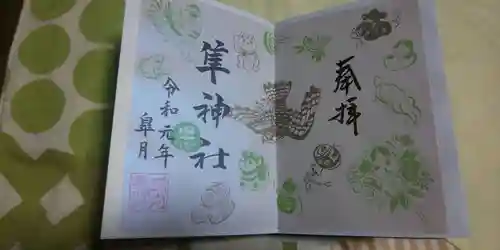 奉拝
隼神社
令和元年
皐月